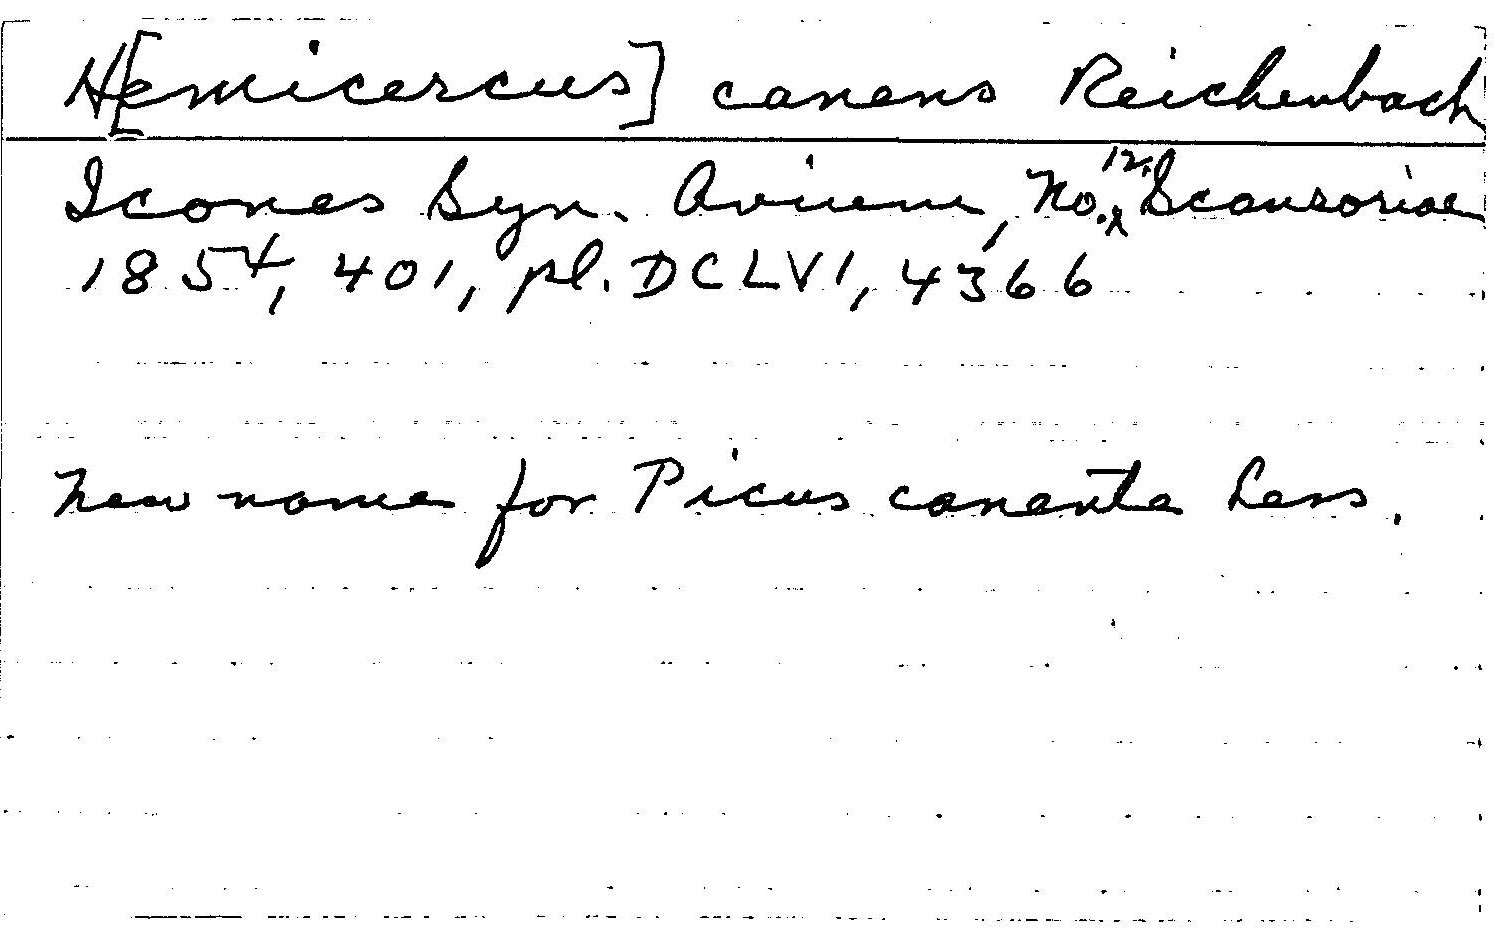 H[emicercus] canens Reichenbach
Icones Syn. Avium, No. 12, Scansoriae
1854, 401, pl. DCLVI, 4366
New name for Picus canente Less.